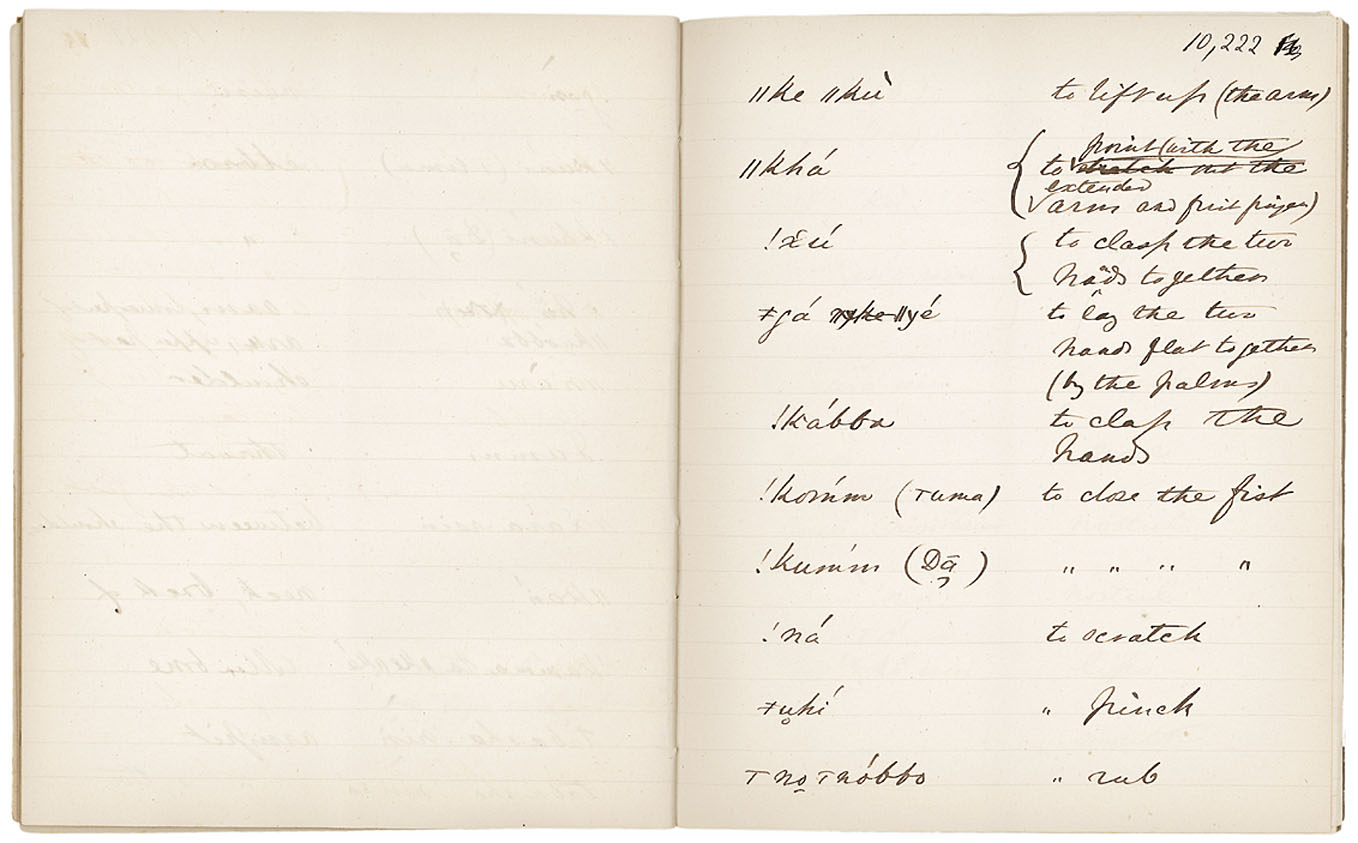 10,222
ǁke ǁkù to lift up (the arm)
point (with the
ǁkhá to stretch out the
extended
arm and first finger)
!x̌ú to clasp the two
hands together
ǂgá ǁyé to lay the two
hands flat together
(by the palms)
!kábba to clap the
hands
!komm̀ (Tuma) to close the fist
!kumḿ (Dā) " " " "
!ná to scratch
ǂu̥hí " pinch
T no̠ T nóbbo " rub